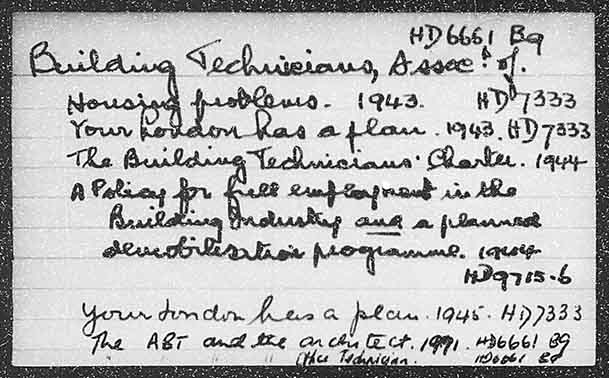 HD6661 B9
Building Technicians, Assocn. of.
Housing problems. 1943. HD7333
Your London has a plan. 1943. HD7333
The Building Technicians' Charter. 1944
A Policy for full employment in the
Building Industry and a planned
demobilisation programme. 1944
HD9715.6
Your London has a plan. 1945. HD7333
The ABT and the architect. 1991. HD6661 B9
" " " " Technician. HD6661 B9